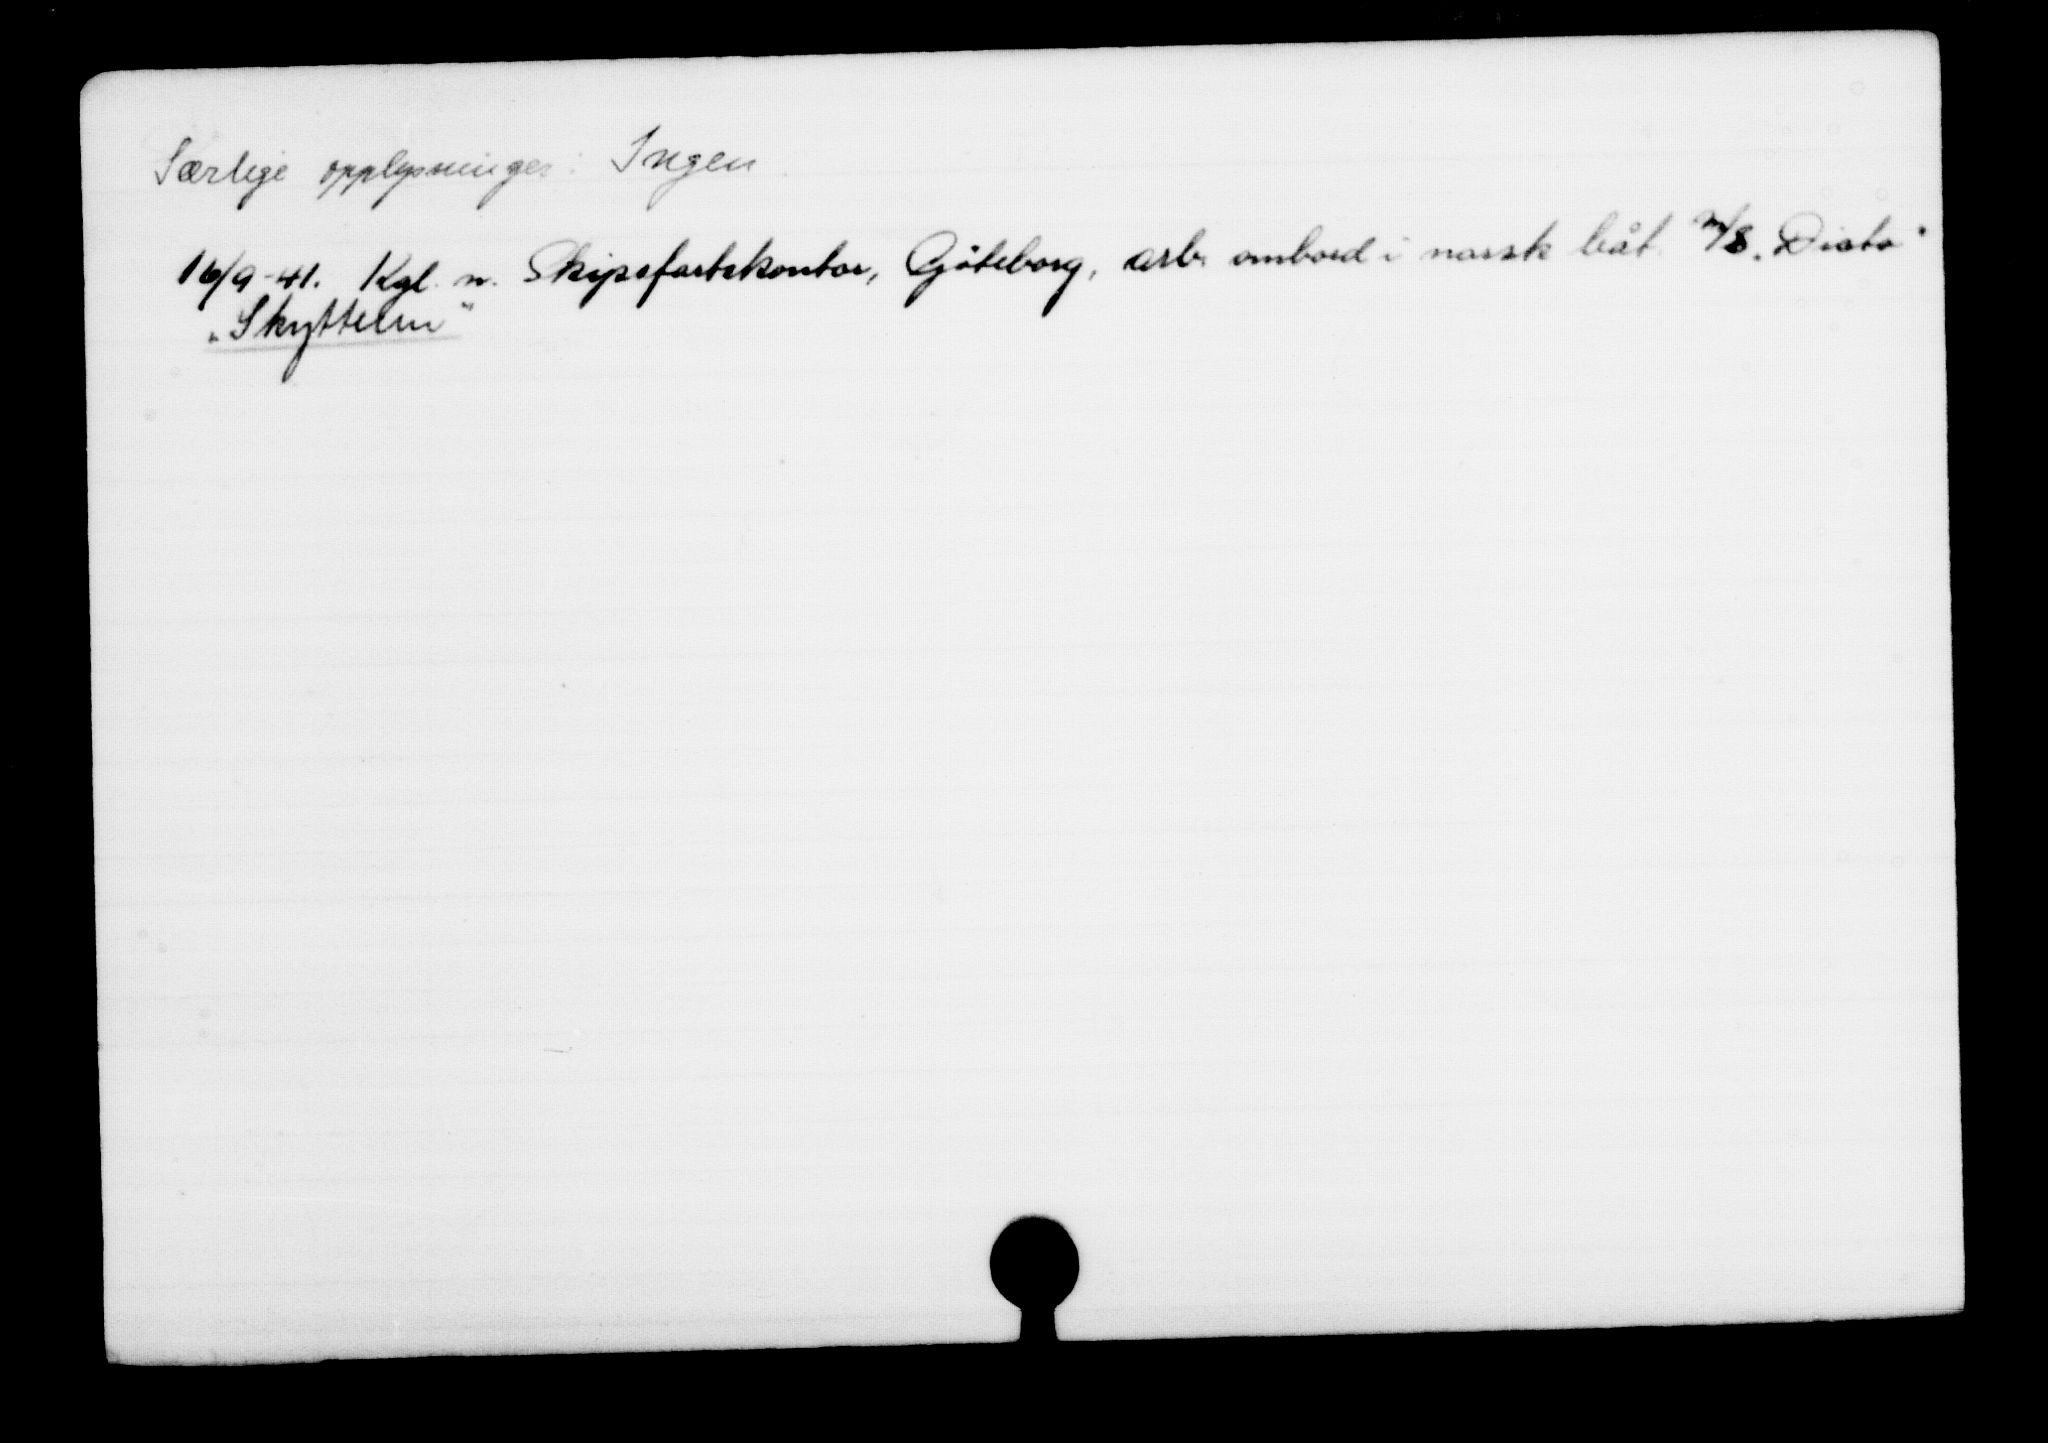 Særlige opplysninger: Ingen
16/9-41. Kgl. n. Skipsfartskontor, Göteborg, arb. ombord i norsk båt. M/S „Dicto"
„Skyttern"